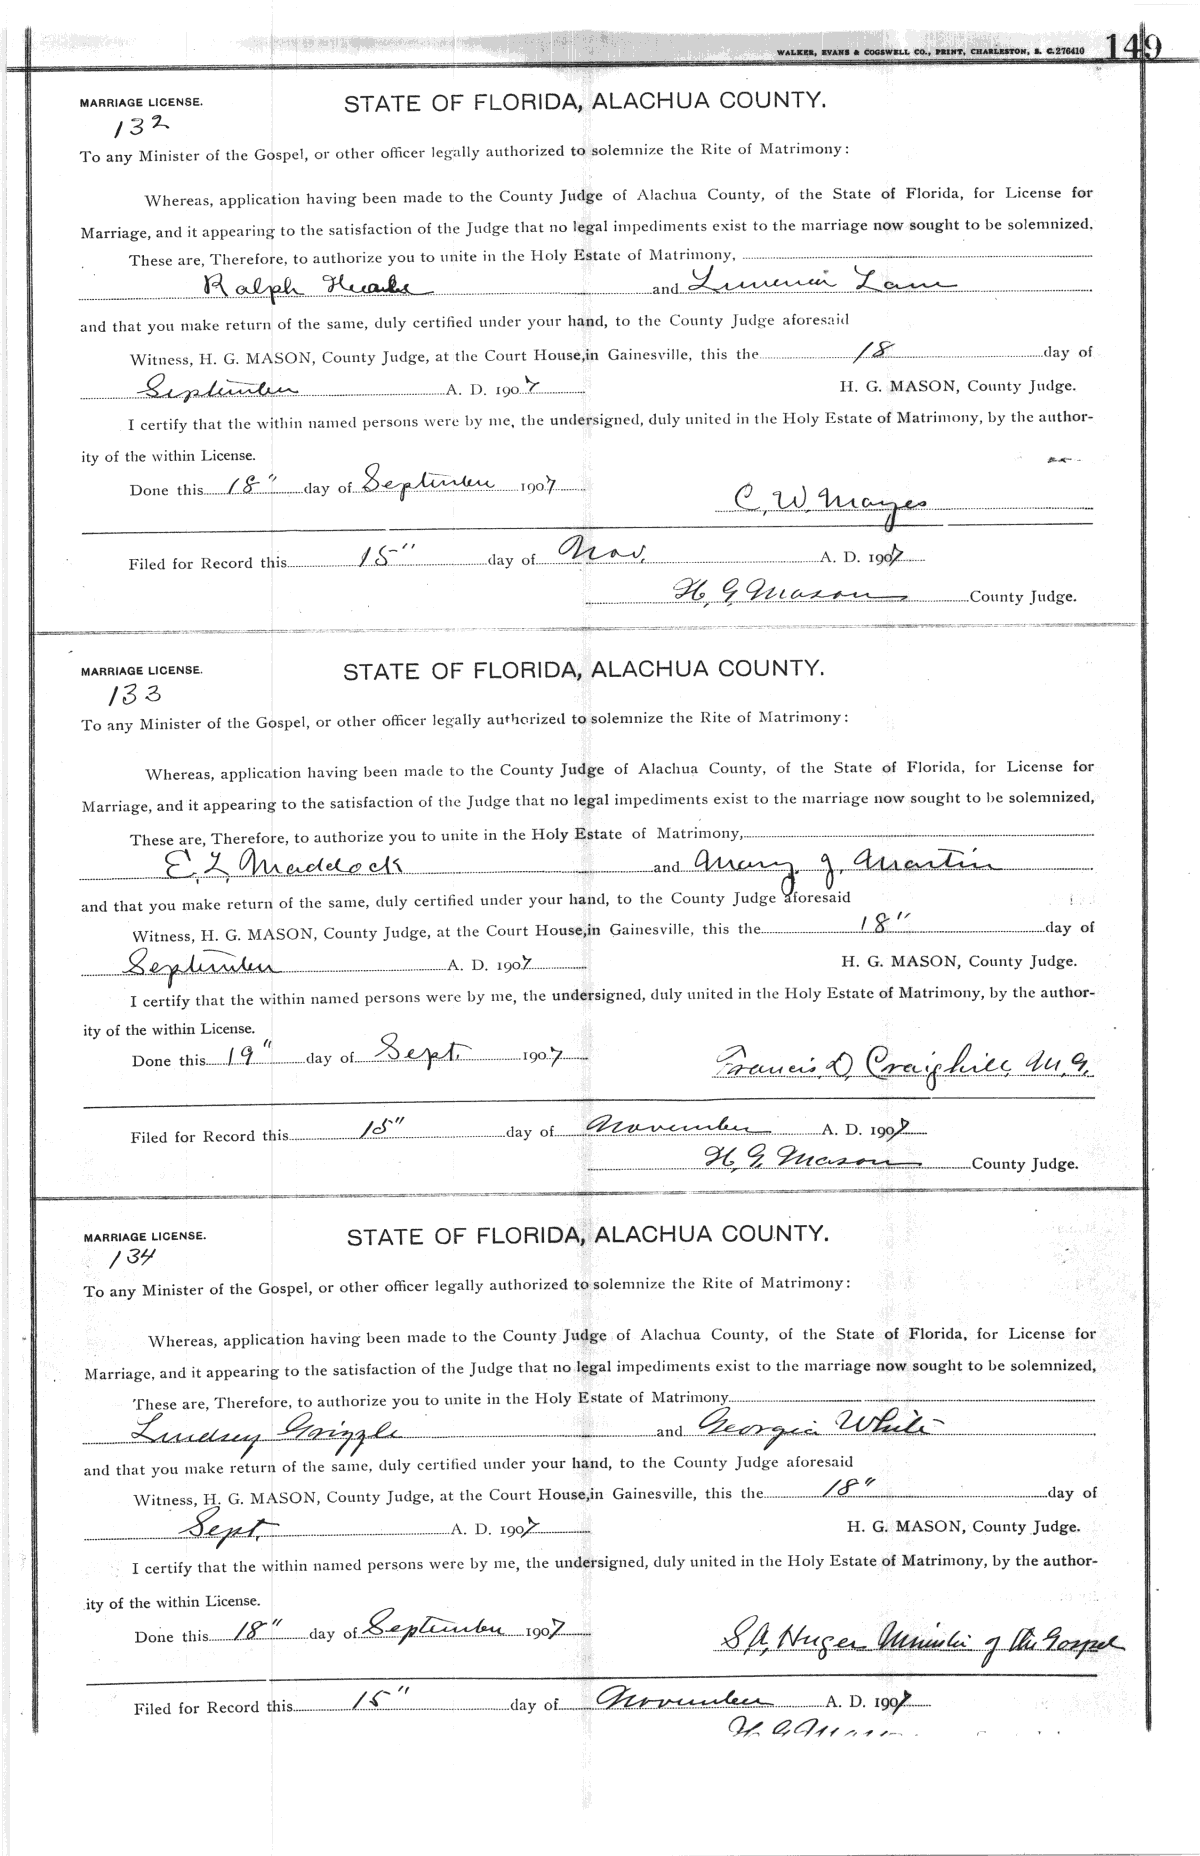 WALKER, EVANS & COGSWELL CO., PRINT, CHARLESTON, S. C. 276410 149
MARRIAGE LICENSE. STATE OF FLORIDA, ALACHUA COUNTY.
132
To any Minister of the Gospel, or other officer legally authorized to solemnize the Rite of Matrimony:
Whereas, application having been made to the County Judge of Alachua County, of the State of Florida, for License for
Marriage, and it appearing to the satisfaction of the Judge that no legal impediments exist to the marriage now sought to be solemnized.
These are, Therefore, to authorize you to unite in the Holy Estate of Matrimony,
Ralph and
and that you make return of the same, duly certified under your hand, to the County Judge aforesaid
Witness, H. G. MASON, County Judge, at the Court House, in Gainesville, this the 18 day of
September A. D. 1907 H. G. MASON, County Judge.
I certify that the within named persons were by me, the undersigned, duly united in the Holy Estate of Matrimony, by the author-
ity of the within License.
Done this 18" day of September 1907
C. W. Mayes
Filed for Record this 15" day of Nov. A. D. 1907
H. G. Mason County Judge.
MARRIAGE LICENSE. STATE OF FLORIDA, ALACHUA COUNTY.
133
To any Minister of the Gospel, or other officer legally authorized to solemnize the Rite of Matrimony:
Whereas, application having been made to the County Judge of Alachua County, of the State of Florida, for License for
Marriage, and it appearing to the satisfaction of the Judge that no legal impediments exist to the marriage now sought to be solemnized,
These are, Therefore, to authorize you to unite in the Holy Estate of Matrimony,
E. L. Maddock and Mary J. Martin
and that you make return of the same, duly certified under your hand, to the County Judge aforesaid
Witness, H. G. MASON, County Judge, at the Court House, in Gainesville, this the 18" day of
September A. D. 1907 H. G. MASON, County Judge.
I certify that the within named persons were by me, the undersigned, duly united in the Holy Estate of Matrimony, by the author-
ity of the within License.
Done this 19" day of Sept. 1907 Francis D. Craighill, M. G.
Filed for Record this 15" day of November A. D. 1907
H. G. Mason County Judge.
MARRIAGE LICENSE. STATE OF FLORIDA, ALACHUA COUNTY.
134
To any Minister of the Gospel, or other officer legally authorized to solemnize the Rite of Matrimony:
Whereas, application having been made to the County Judge of Alachua County, of the State of Florida, for License for
Marriage, and it appearing to the satisfaction of the Judge that no legal impediments exist to the marriage now sought to be solemnized,
These are, Therefore, to authorize you to unite in the Holy Estate of Matrimony
Lindsey Grizzle and Georgia White
and that you make return of the same, duly certified under your hand, to the County Judge aforesaid
Witness, H. G. MASON, County Judge, at the Court House, in Gainesville, this the 18" day of
Sept. A. D. 1907 H. G. MASON, County Judge.
I certify that the within named persons were by me, the undersigned, duly united in the Holy Estate of Matrimony, by the author-
ity of the within License.
Done this 18" day of September 1907 S. A. Huger Minister of the Gospel
Filed for Record this 15" day of November A. D. 1907
H. G. Mason